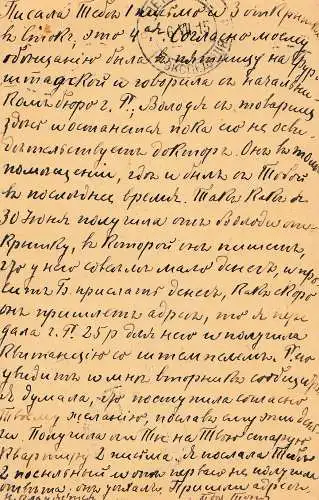 Писала Тебѣ 1 письмо и 3 открытки
въ Спскъ, это 4ая. Согласно моему
обѣщанію была въ пятницу на Фур
штадской и говорила съ начальни
комъ бюро г. П, Володя съ товарищ
здѣсь и останется пока его не осви
дѣтельствуетъ докторъ. Онъ въ томъ
помѣщеніи, гдѣ и былъ съ Тобой
въ последнее время. Такъ какъ я
30 Іюня получила отъ Володи от
крытку, въ которой онъ пишетъ,
что у него совсѣмъ мало денегъ, и про
ситъ Б прислать денегъ, какъ скоро
онъ пришлетъ адресъ, то я пере
дала г. П 25 р для него и получила
квитанцію со штемпелемъ. П его
увидитъ и мнѣ вторникъ сообщитъ
Я думала, что поступила согласно
Твоему желанію, пославъ ему эти день
ги. Получила ли Ты на Твою старую
квартиру 2 письма. Я послала Тебѣ
2 посыльный и отъ перваго не получила
отвѣта, онъ уѣхалъ. Пришли адресъ